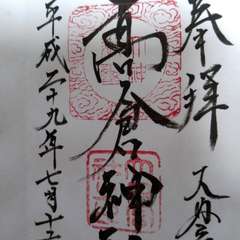 奉拝
高倉神
平成二十九年七月十